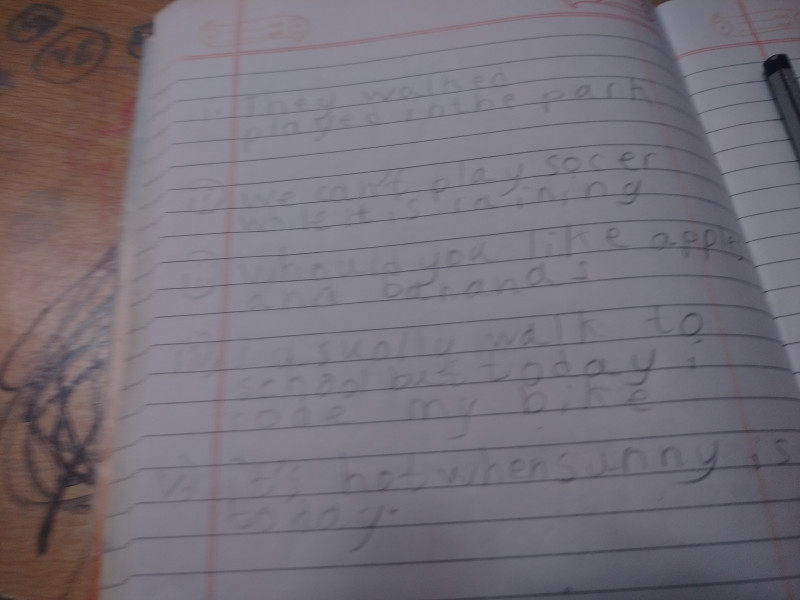 They walked
played in the park
(ii) we can't play socer
while it is raining
whould you like apple
and bananas
I usually walk to
school but today i
rode my bike
v. it's hot when sunny is
today.